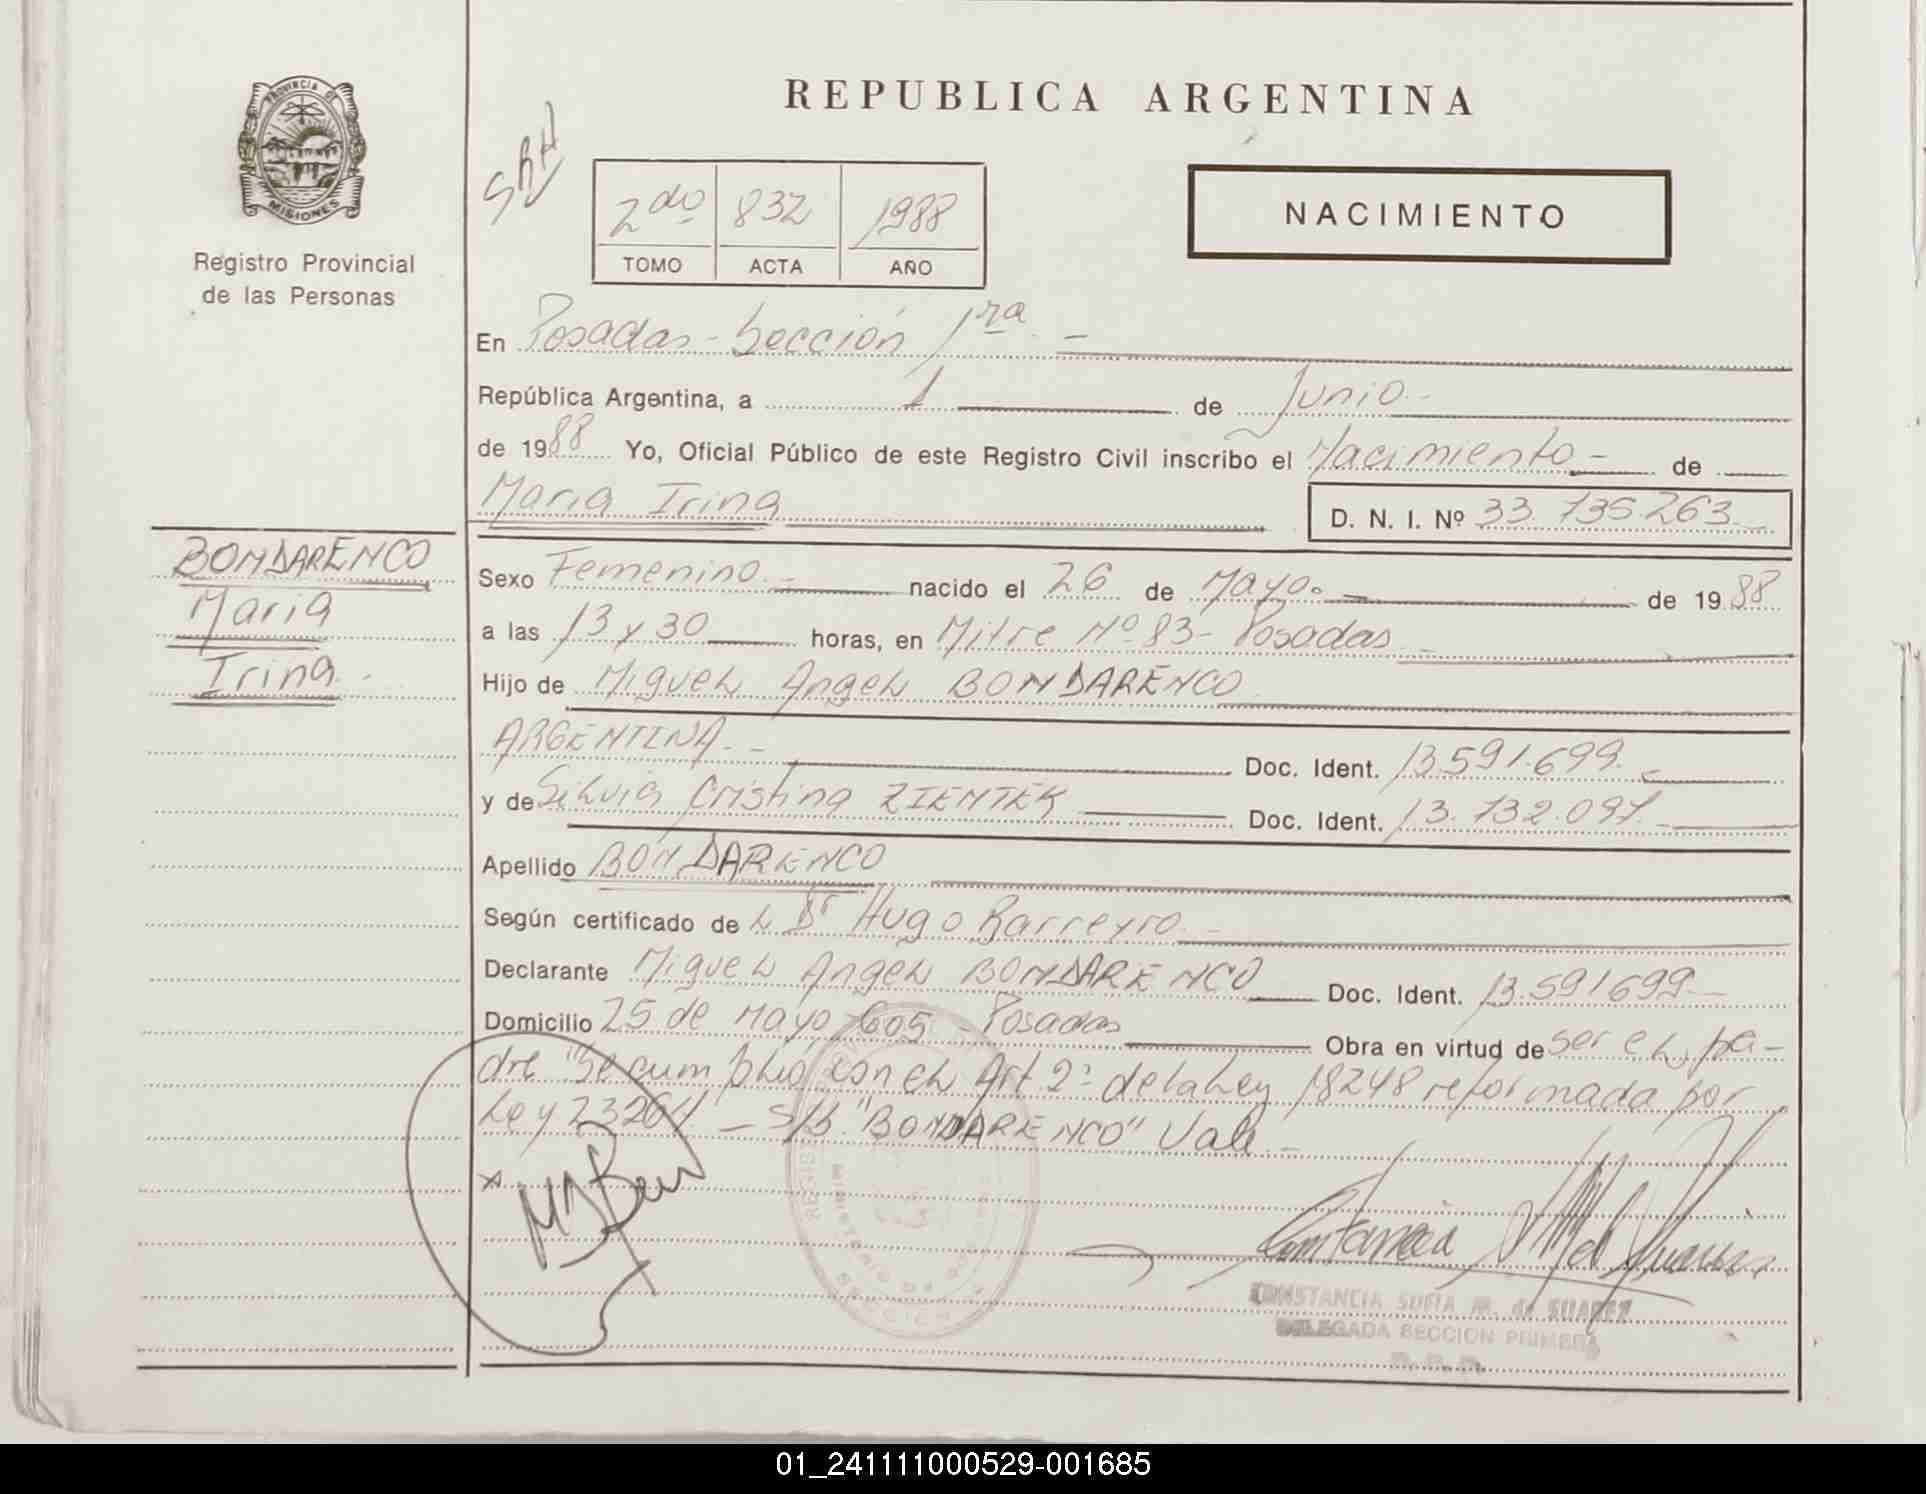 PROVINCIA DE
MISIONES
Registro Provincial
de las Personas
BONDARENCO
Maria
Irina.-
REPUBLICA ARGENTINA
2do 832 1988
TOMO ACTA AÑO
NACIMIENTO
En Posadas-Sección 1ra -
República Argentina, a 1 de Junio.-
de 1988 Yo, Oficial Público de este Registro Civil inscribo el Nacimiento- de
Maria Irina D. N. I. Nº 33.735.263.-
Sexo Femenino.- nacido el 26 de Mayo.- de 1988
a las 13 y 30 horas, en Mitre Nº 83- Posadas.-
Hijo de Miguel Angel BONDARENCO
ARGENTINA.- Doc. Ident. 13.591.699.-
y de Silvia Cristina ZIENTEK Doc. Ident. 13.732.097.-
Apellido BONDARENCO
Según certificado de L Dr Hugo Barreyro.-
Declarante Miguel Angel BONDARENCO Doc. Ident. 13.591699-
Domicilio 25 de Mayo 605 - Posadas Obra en virtud de ser el pa-
dre "Se cumplió con el Art 2º de la Ley 18248 reformada por
Ley 23264. - S/B. "BONDARENCO" Vale.-
CONSTANCIA SOFIA M. de SUAREZ
DELEGADA SECCION PRIMERA
01_241111000529-001685